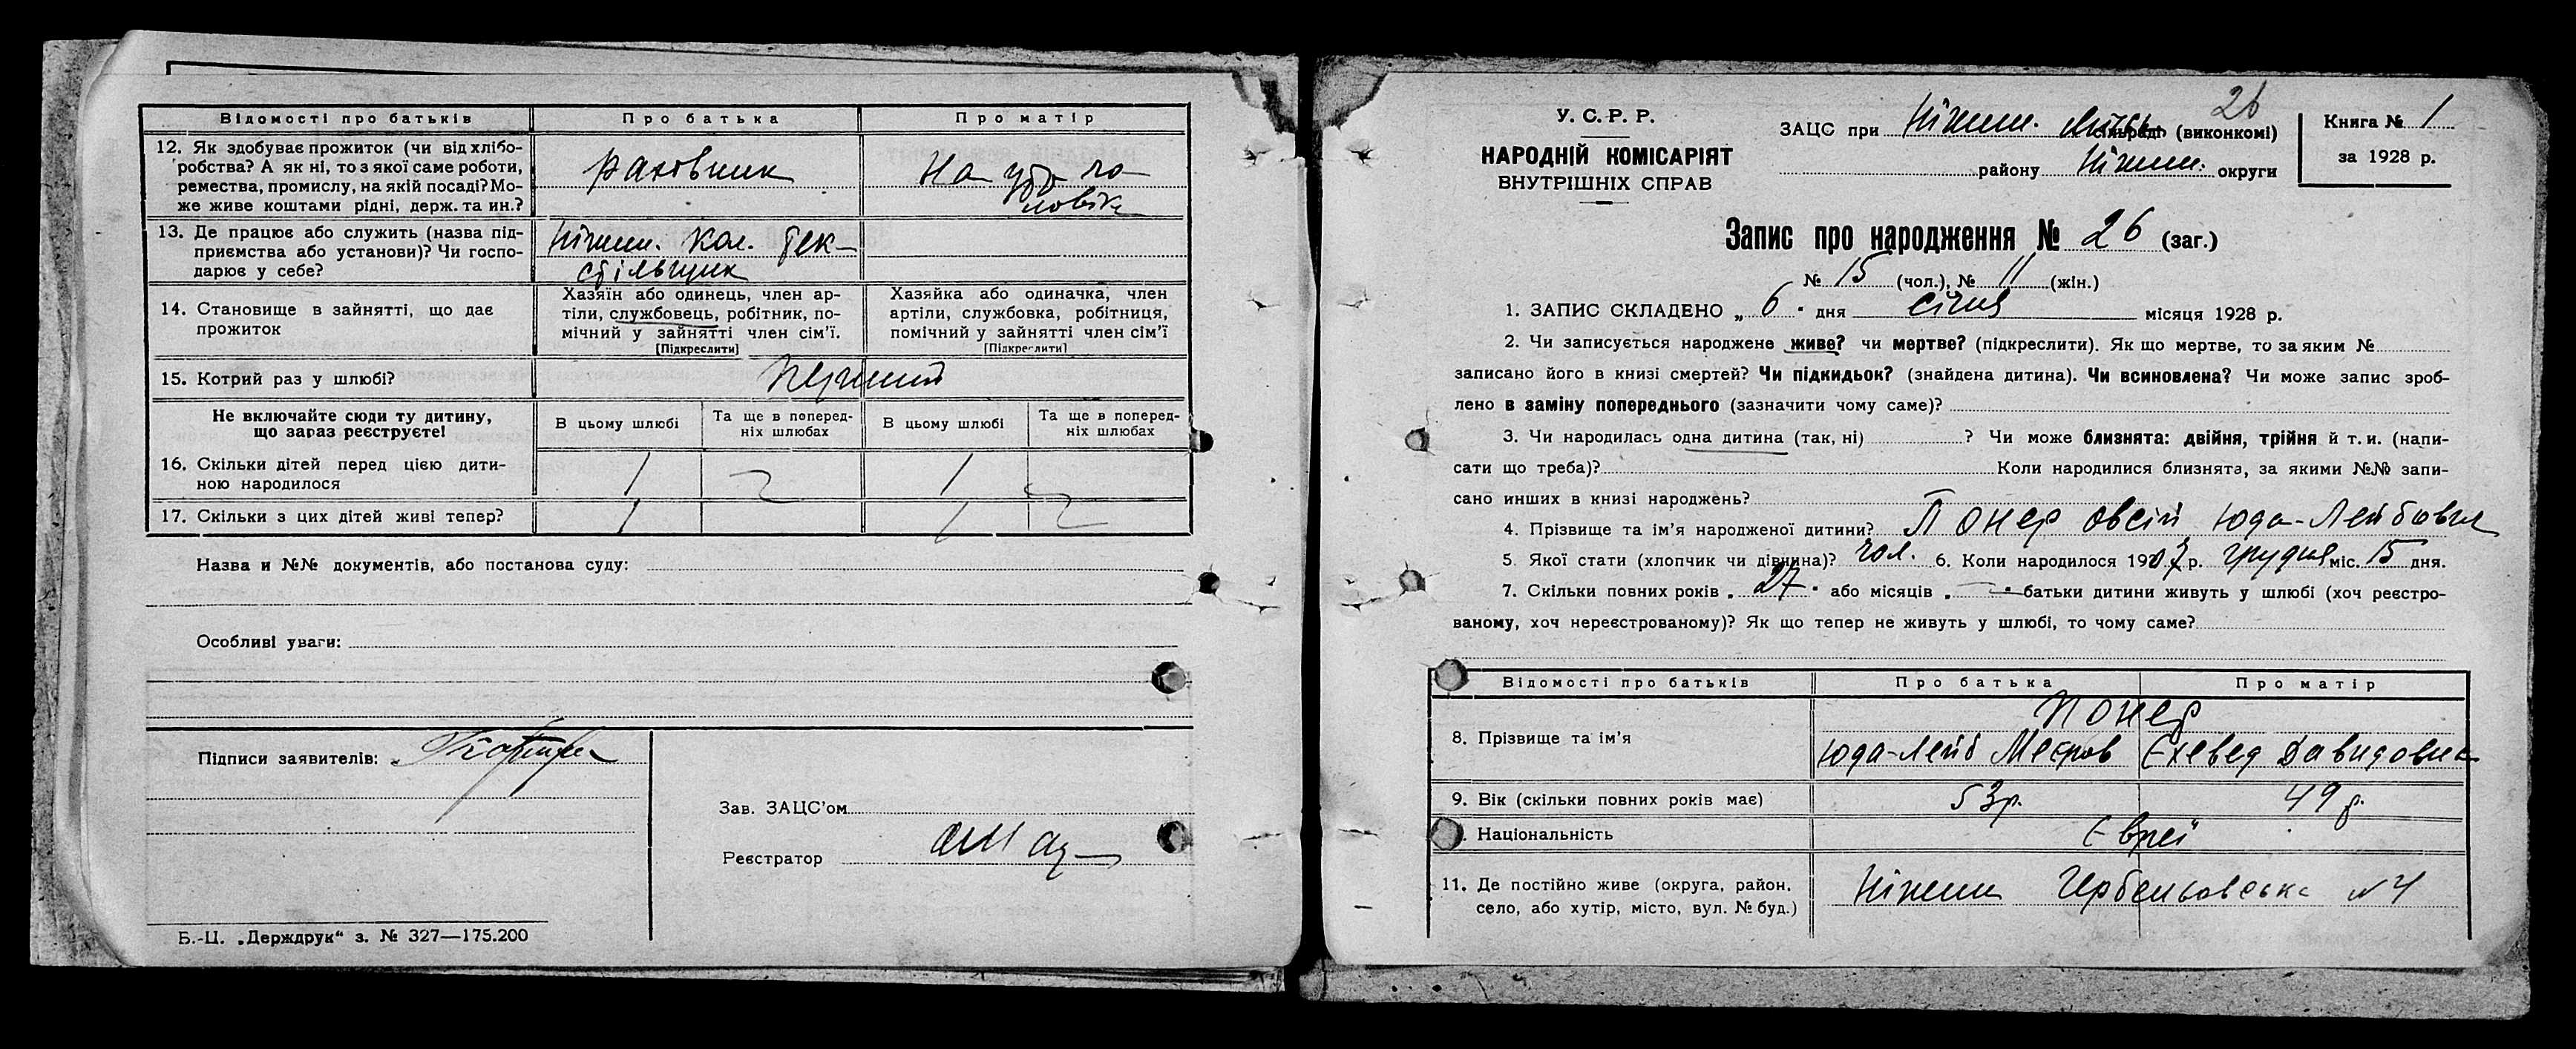 Відомості про батьків Про батька Про матір
12. Як здобуває прожиток (чи від хлібо-
робства? А як ні, то з якої саме роботи,
ремества, промислу, на якій посаді? Мо-
же живе коштами рідні, держ. та ин.?
раховник
На утр. чо
ловіка
13. Де працює або служить (назва під-
приємства або установи)? Чи госпо-
дарює у себе?
Ніжин. Кол. Тек-
стільщик
14. Становище в зайнятті, що дає
прожиток
Хазяїн або одинець, член ар-
тіли, службовець, робітник, по-
мічний у зайнятті член сім'ї.
[Підкреслити]
Хазяйка або одиначка, член
артіли, службовка, робітниця,
помічний у зайнятті член сім'ї
[Підкреслити]
15. Котрий раз у шлюбі? перший
Не включайте сюди ту дитину,
що зараз реєструєте!
В цьому шлюбі
Та ще в поперед-
ніх шлюбах
В цьому шлюбі
Та ще в поперед-
ніх шлюбах
16. Скільки дітей перед цією дити-
ною народилося
1 1
17. Скільки з цих дітей живі тепер? 1 1
Назва и №№ документів, або постанова суду:
Особливі уваги:
Підписи заявителів:
Зав. ЗАЦС'ом
Реєстратор
Б.-Ц. „Держдрук“ з. № 327—175.200
26
У. С. Р. Р.
НАРОДНІЙ КОМІСАРІЯТ
ВНУТРІШНІХ СПРАВ
ЗАЦС при Ніжин. сільраді (виконкомі)
району Ніжин. округи
Книга № 1
за 1928 р.
Запис про народження № 26 (заг.)
№ 15 (чол.), № 11 (жін.)
1. ЗАПИС СКЛАДЕНО „ 6 " дня січня місяця 1928 р.
2. Чи записується народжене живе? чи мертве? (підкреслити). Як що мертве, то за яким №
записано його в книзі смертей? Чи підкидьок? (знайдена дитина). Чи всиновлена? Чи може запис зроб-
лено в заміну попереднього (зазначити чому саме)?
3. Чи народилась одна дитина (так, ні) ? Чи може близнята: двійня, трійня й т. и. (напи-
сати що треба)? Коли народилися близнята, за якими №№ запи-
сано инших в книзі народжень?
4. Прізвище та ім'я народженої дитини? Понер Овсій Юда-Лейбович
5. Якої стати (хлопчик чи дівчина)? чол. 6. Коли народилося 1907 р. грудня міс. 15 дня.
7. Скільки повних років „ 27 " або місяців „ — " батьки дитини живуть у шлюбі (хоч реєстро-
ваному, хоч нереєстрованому)? Як що тепер не живуть у шлюбі, то чому саме?
Відомості про батьків Про батька Про матір
8. Прізвище та ім'я
Понер
Юда-Лейб Меєров Єхевед Давидовна
9. Вік (скільки повних років має) 53 р. 49 р.
Національність Євреї
11. Де постійно живе (округа, район,
село, або хутір, місто, вул. № буд.)
Ніжин №4